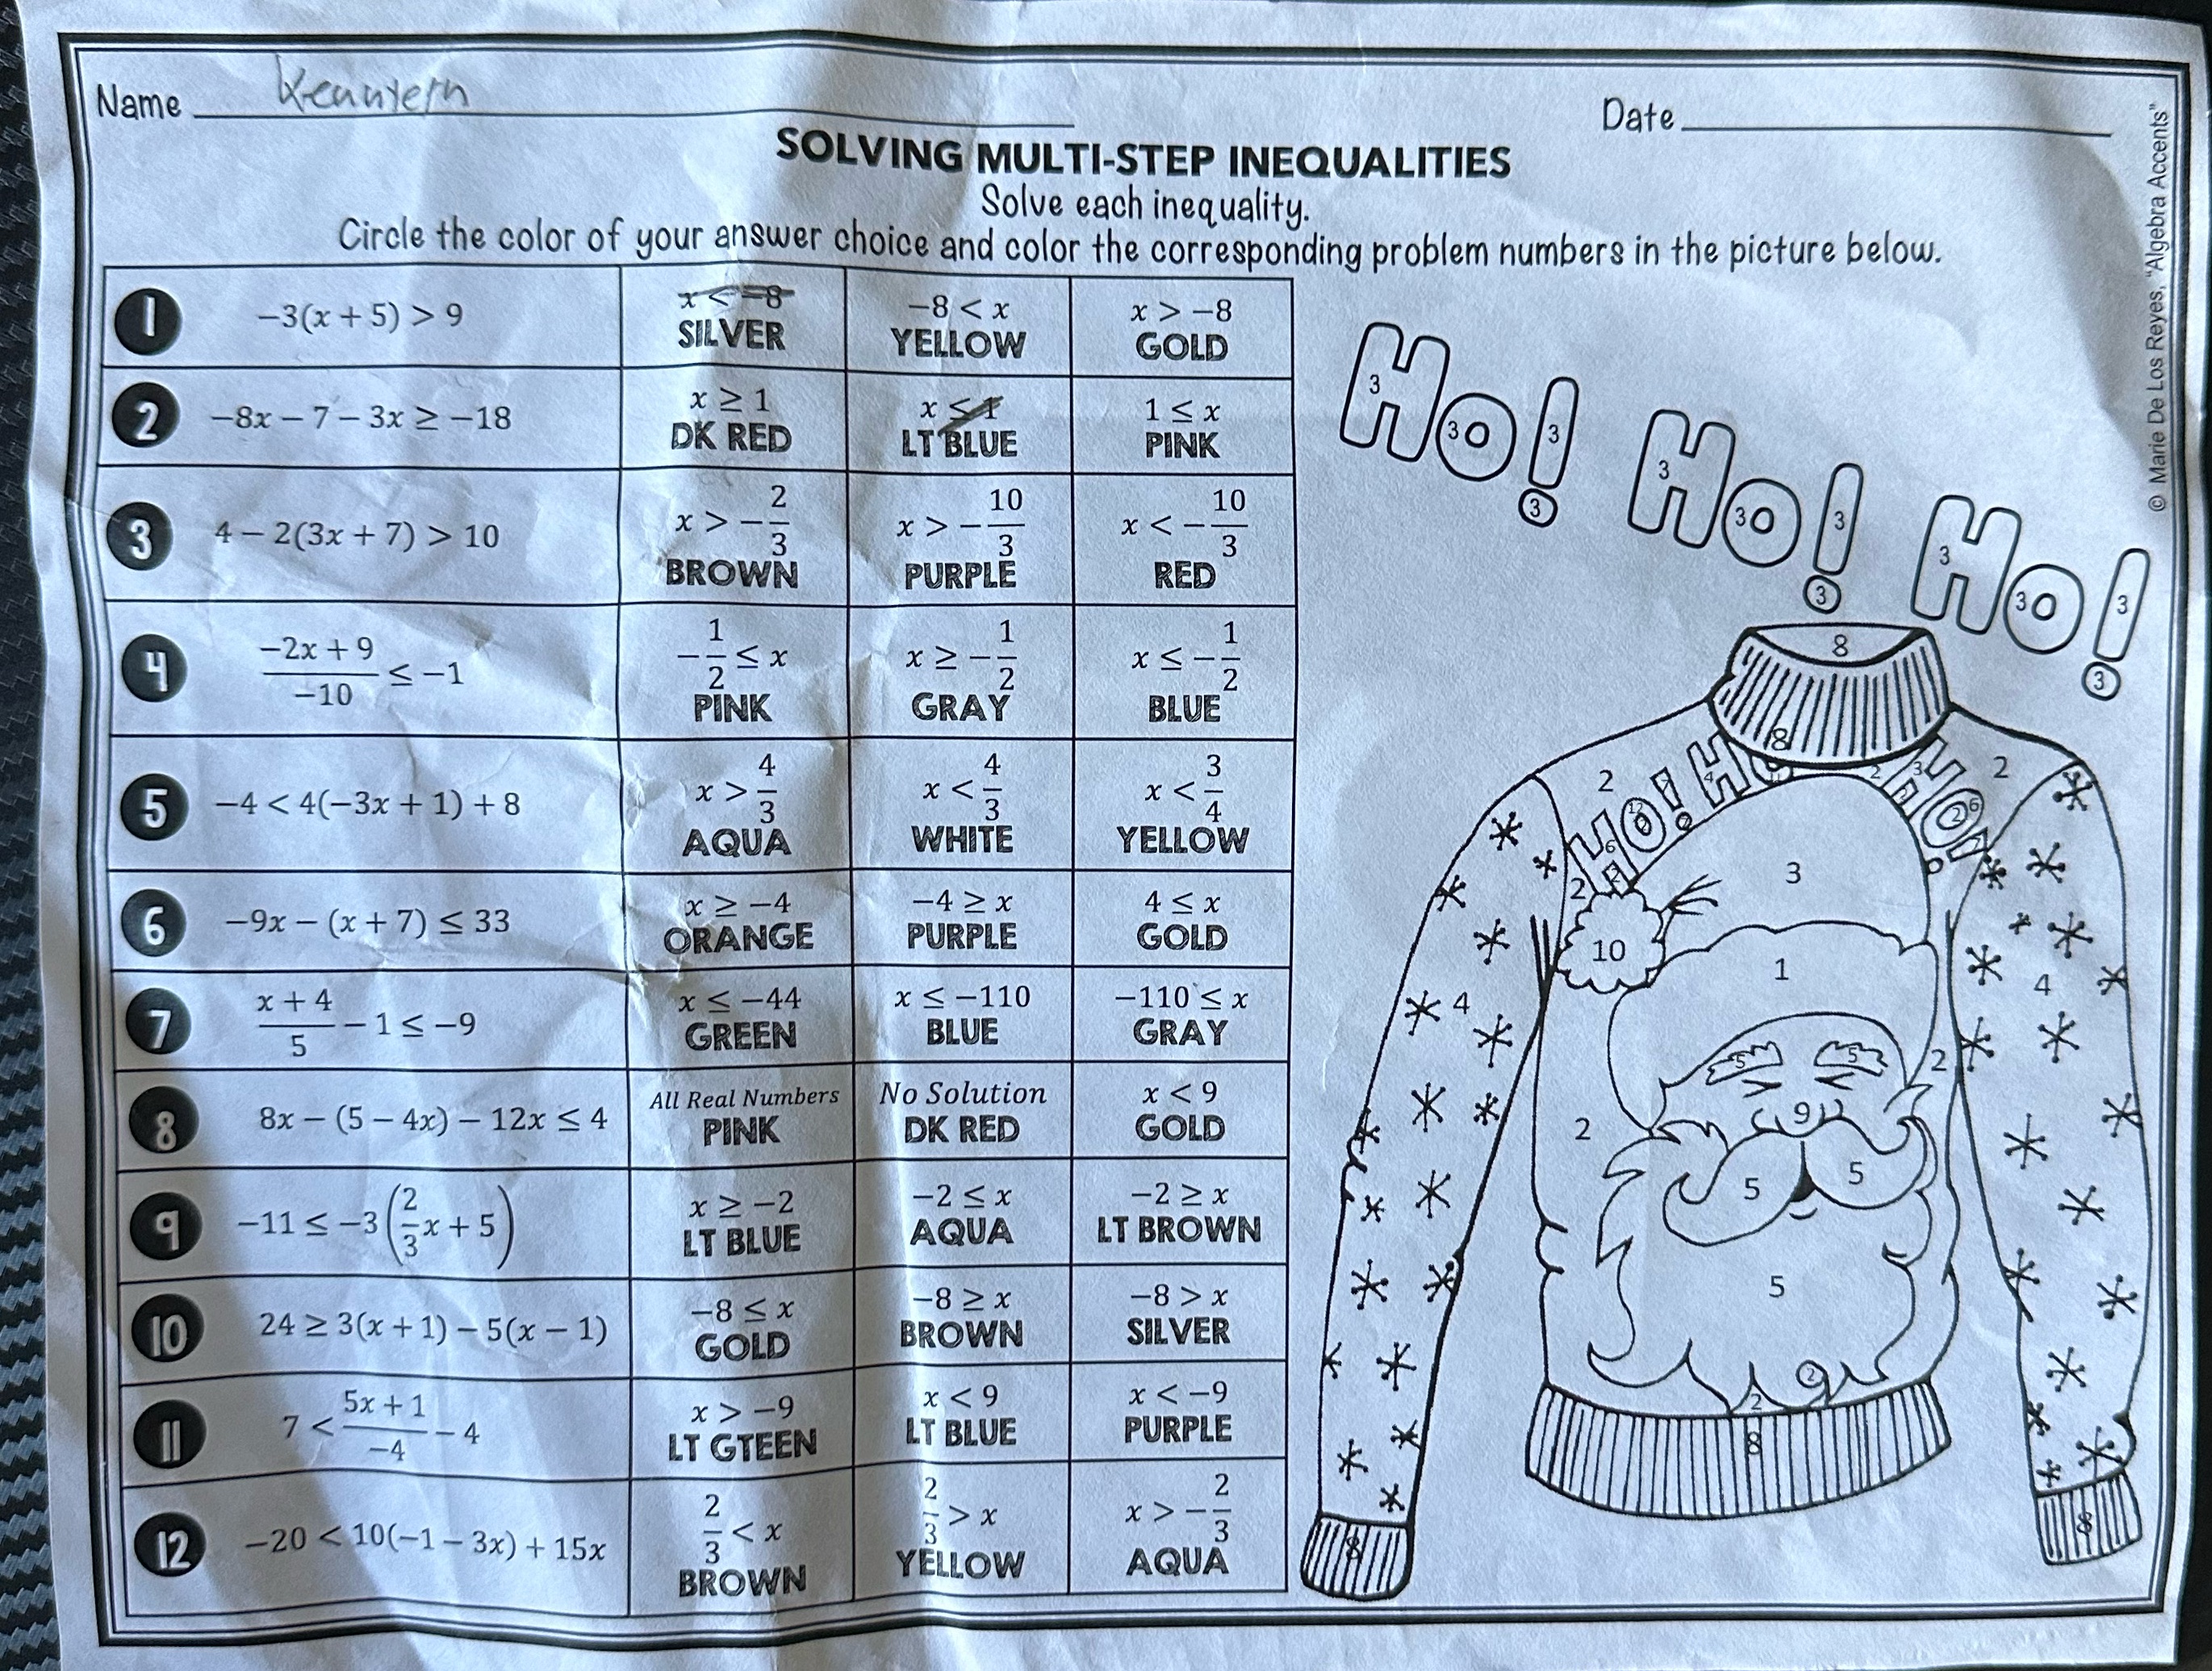 Name
Date
SOLVING MULTI-STEP INEQUALITIES
Solve each inequality.
Circle the color of your answer choice and color the corresponding problem numbers in the picture below.
1 −3(x + 5) > 9
x < −8 SILVER
−8 < x YELLOW
x > −8 GOLD
2 −8x − 7 − 3x ≥ −18
x ≥ 1 DK RED
x ≤ 1 LT BLUE
1 ≤ x PINK
3 4 − 2(3x + 7) > 10
x > −2/3 BROWN
x > −10/3 PURPLE
x < −10/3 RED
4 (−2x + 9)/−10 ≤ −1
−1/2 ≤ x PINK
x ≥ −1/2 GRAY
x ≤ −1/2 BLUE
5 −4 < 4(−3x + 1) + 8
x > 4/3 AQUA
x < 4/3 WHITE
x < 3/4 YELLOW
6 −9x − (x + 7) ≤ 33
x ≥ −4 ORANGE
−4 ≥ x PURPLE
4 ≤ x GOLD
7 (x + 4)/5 − 1 ≤ −9
x ≤ −44 GREEN
x ≤ −110 BLUE
−110 ≤ x GRAY
8 8x − (5 − 4x) − 12x ≤ 4
All Real Numbers PINK
No Solution DK RED
x < 9 GOLD
9 −11 ≤ −3(2/3x + 5)
x ≥ −2 LT BLUE
−2 ≤ x AQUA
−2 ≥ x LT BROWN
10 24 ≥ 3(x + 1) − 5(x − 1)
−8 ≤ x GOLD
−8 ≥ x BROWN
−8 > x SILVER
11 7 < (5x + 1)/−4 − 4
x > −9 LT GTEEN
x < 9 LT BLUE
x < −9 PURPLE
12 −20 < 10(−1 − 3x) + 15x
2/3 < x BROWN
2/3 > x YELLOW
x > −2/3 AQUA
Ho! Ho! Ho!
3 3 3 3
3 3 3 3
3 3 3 3
8
8
2 2
HO! HO HO!
2
3
10
1
4 4
5 5
2
9
2
5 5
5
2
2
8
8 8
© Marie De Los Reyes, "Algebra Accents"